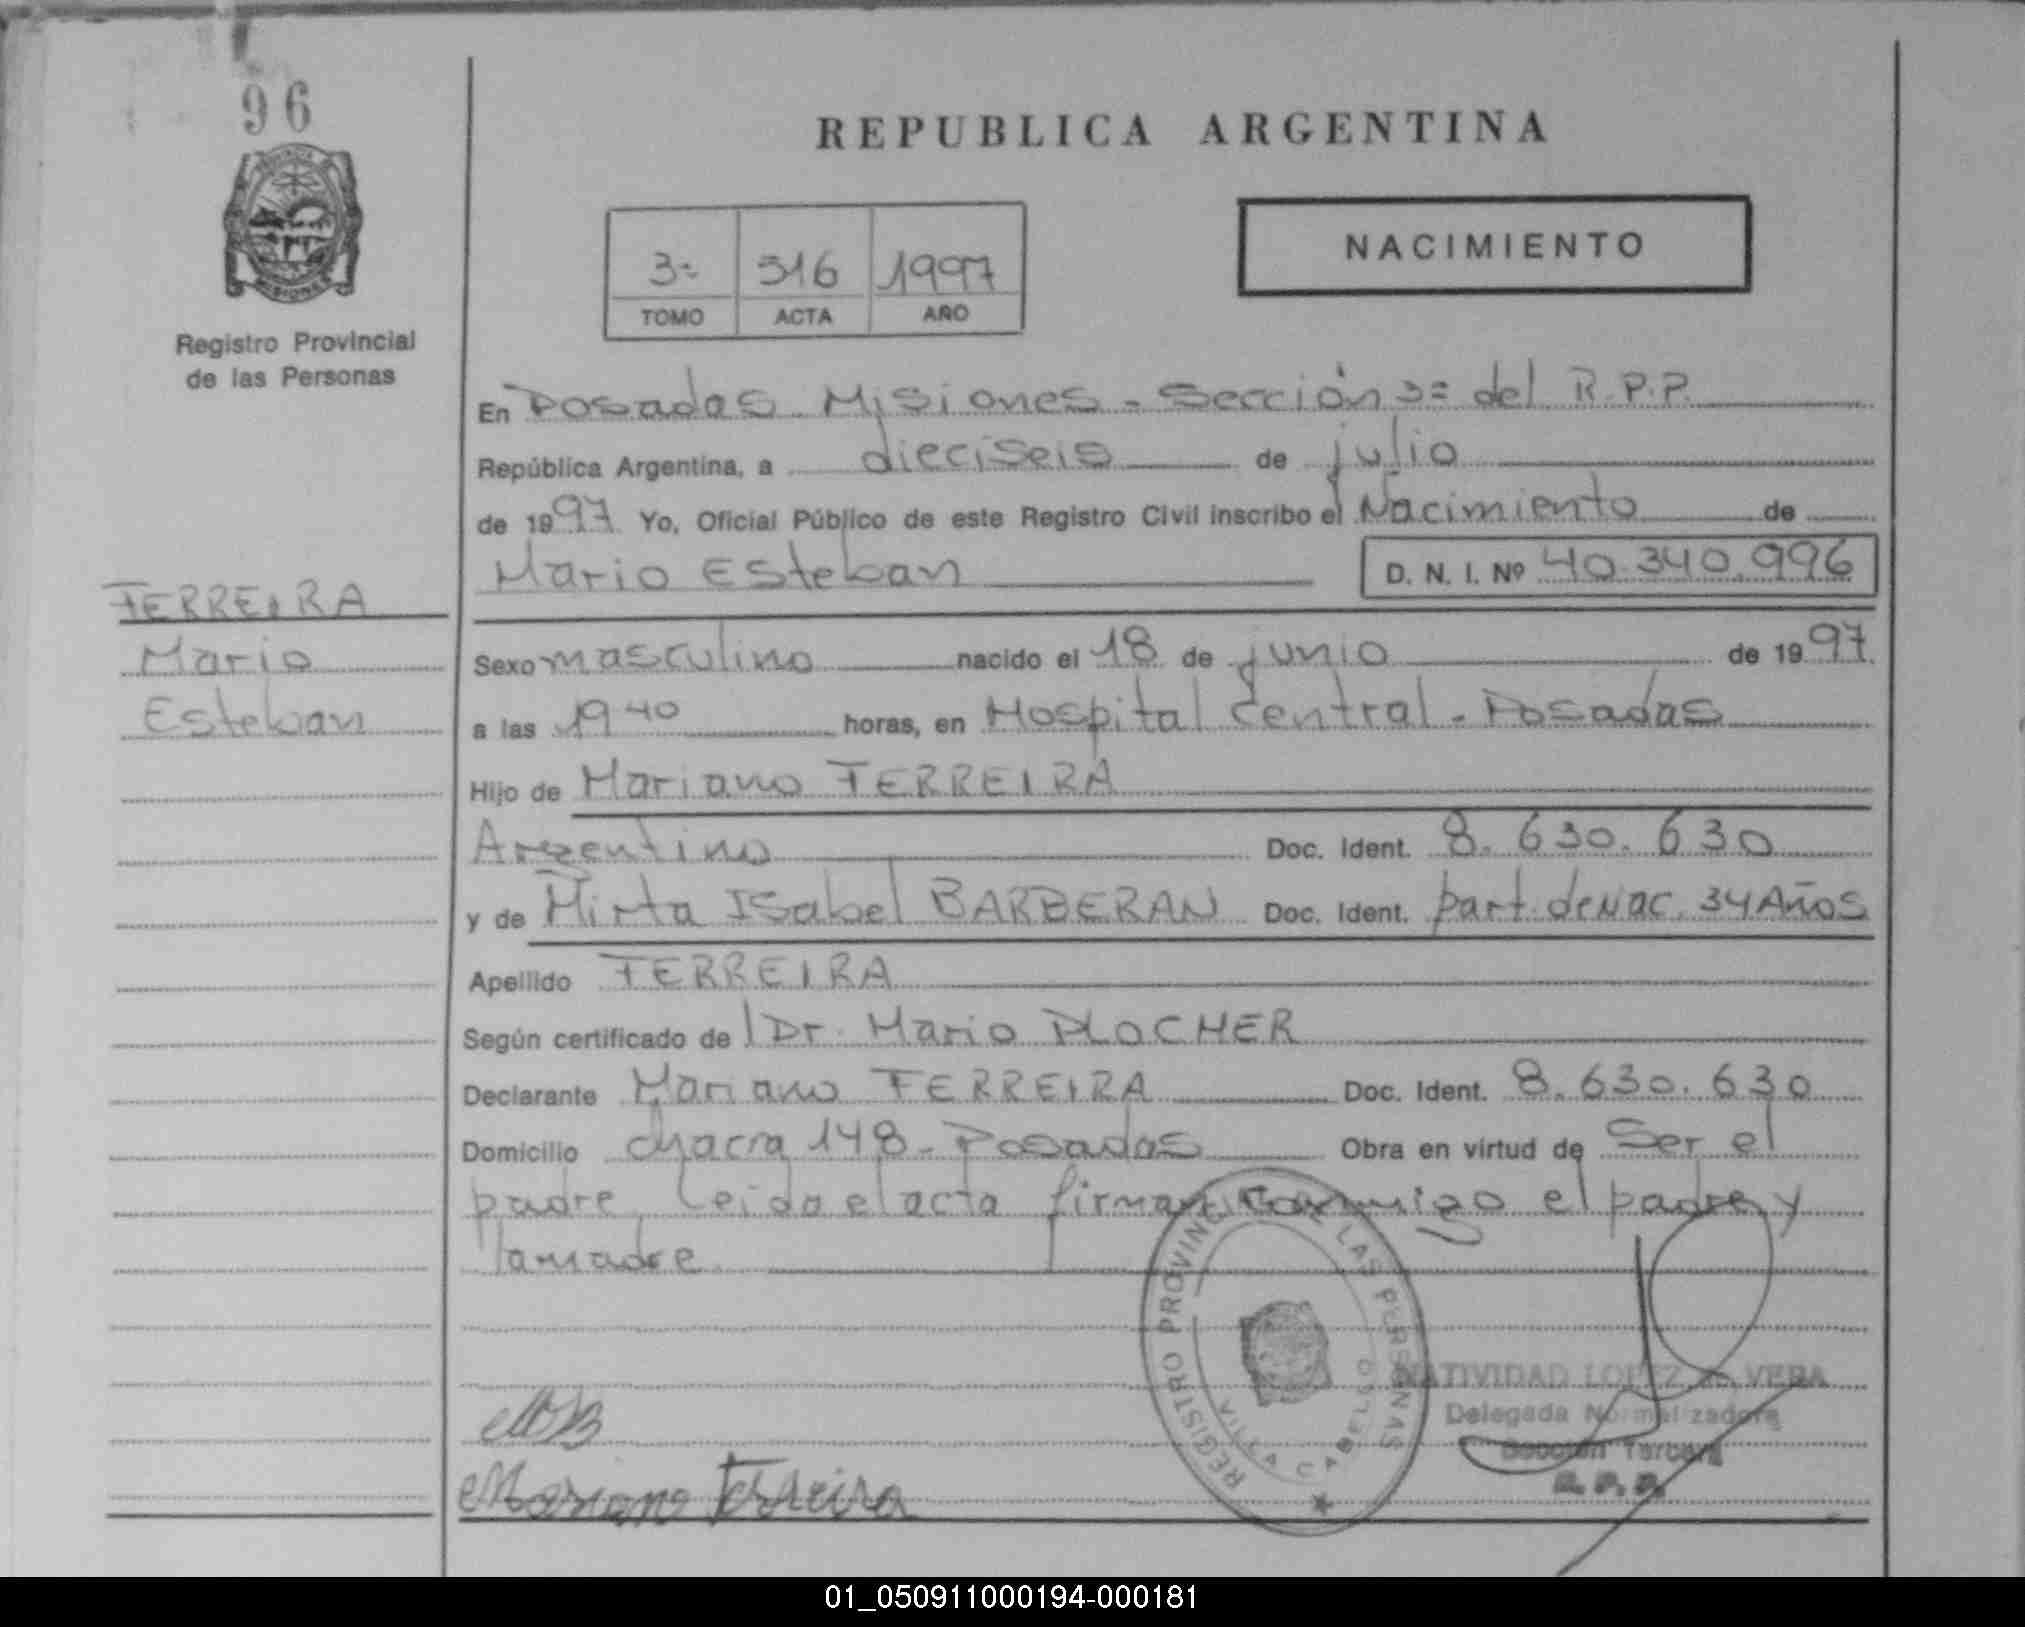 96
REPUBLICA ARGENTINA
PROVINCIA DE
MISIONES
NACIMIENTO
3= 516 1997
TOMO ACTA AÑO
Registro Provincial
de las Personas
En Posadas Misiones - Sección 3= del R.P.P.
República Argentina, a dieciseis de julio
de 1997 Yo, Oficial Público de este Registro Civil inscribo el Nacimiento de
Mario Esteban D. N. I. Nº 40.340.996
FERREIRA
Mario
Esteban
Sexo masculino nacido el 18 de junio de 1997
a las 19 40 horas, en Hospital Central - Posadas
Hijo de Mariano FERREIRA
Argentino Doc. Ident. 8.630.630
y de Mirta Isabel BARBERAN Doc. Ident. part. de Nac. 34 Años
Apellido FERREIRA
Según certificado de l Dr. Mario PLOCHER
Declarante Mariano FERREIRA Doc. Ident. 8.630.630
Domicilio chacra 148 - Posadas Obra en virtud de Ser el
padre, Leida el acta firman conmigo el padre y
la madre
REGISTRO PROVINCIAL DE LAS PERSONAS
VILLA CABELLO
NATIVIDAD LOPEZ de VERA
Delegada Normalizadora
Sección Tercera
R. P. P.
MIB
Mariano Ferreira
01_050911000194-000181